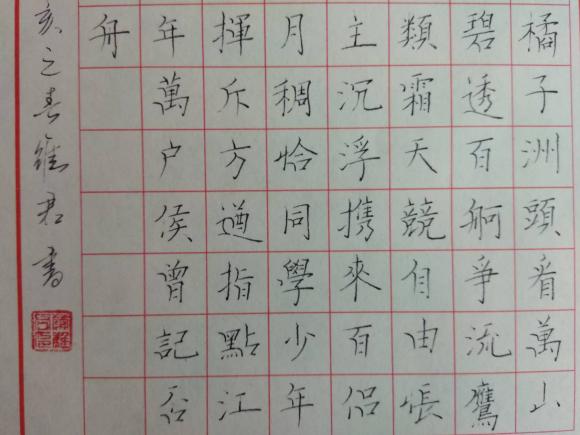 橘子洲頭看萬山
碧透百舸爭流鷹
類霜天競自由悵
主沉浮携來百侶
月稠恰同學少年
揮斥方遒指點江
年萬户侯曾記否
舟
亥之春君書